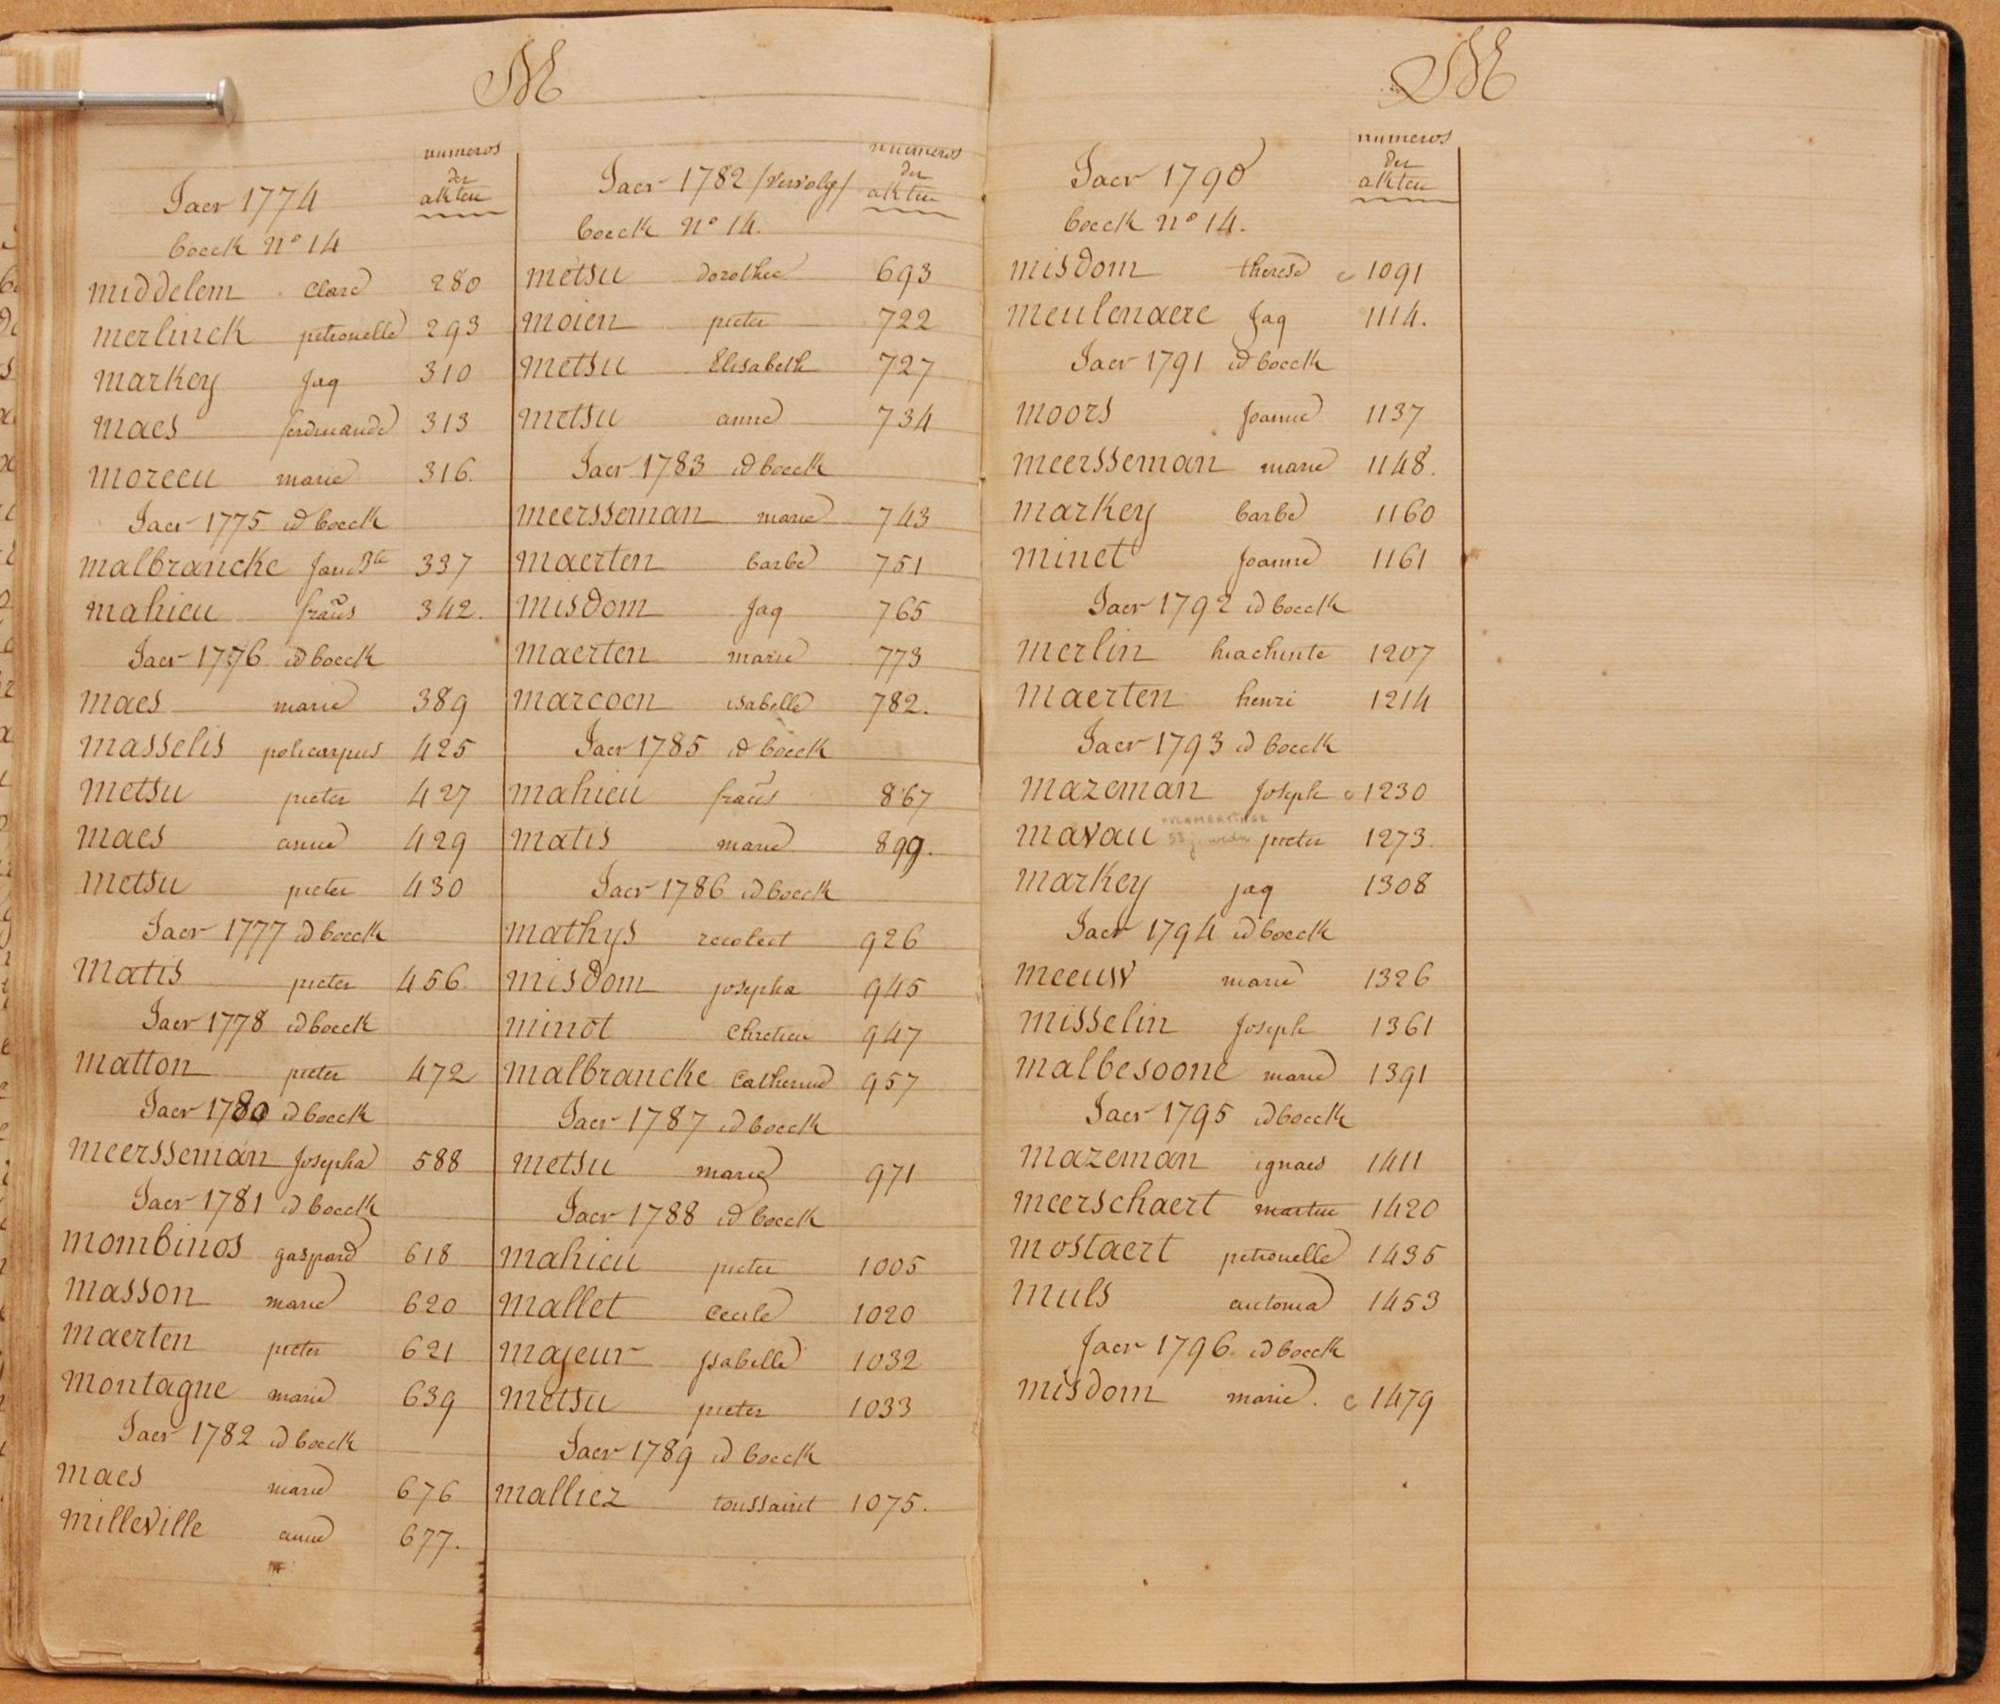 M
numeros
der
akten
Jaer 1774
boeck n° 14
middelem clare 280
merlinck petronelle 293
markey jaq 310
maes ferdinande 313
moreeu marie 316.
Jaer 1775 id boeck
malbrancke 337
mahieu frans 342.
Jaer 1776 id boeck
maes marie 389
masselis policarpus 425
metsu pieter 427
maes anne 429
metsu pieter 430
Jaer 1777 id boeck
matis pieter 456.
Jaer 1778 id boeck
matton pieter 472
Jaer 1780 id boeck
meersseman josepha 588
Jaer 1781 id boeck
mombinos gaspard 618
masson marie 620
maerten pieter 621
montagne marie 639
Jaer 1782 id boeck
maes marie 676
milleville anne 677.
numeros
der
akten
Jaer 1782 /vervolg/
boeck n° 14.
metsu dorothee 693
moien pieter 722
metsu Elisabeth 727
metsu anne 734
Jaer 1783 id boeck
meersseman marie 743
maerten barbe 751
misdom jaq 765
maerten marie 773
marcoen isabelle 782.
Jaer 1785 id boeck
mahieu frans 867
matis marie 899.
Jaer 1786 id boeck
mathys recolect 926
misdom josepha 945
minot chretien 947
malbrancke catherine 957
Jaer 1787 id boeck
metsu marie 971
Jaer 1788 id boeck
mahieu pieter 1005
mallet cecile 1020
majeur jsabelle 1032
metsu pieter 1033
Jaer 1789 id boeck
malliez toussaint 1075.
M
numeros
der
akten
Jaer 1790
boeck n° 14.
misdom therese c 1091
meulenaere jaq 1114.
Jaer 1791 id boeck
moors joanne 1137
meersseman marie 1148.
markey barbe 1160
minet joanne 1161
Jaer 1792 id boeck
merlin hiachinte 1207
maerten henri 1214
Jaer 1793 id boeck
mazeman joseph c 1230
mavau pieter 1273.
markey jaq 1308
Jaer 1794 id boeck
meeuw marie 1326
misselin joseph 1361
malbesoone marie 1391
Jaer 1795 id boeck
mazeman ignaes 1411
meerschaert martin 1420
mostaert petronelle 1435
muls antonia 1453
Jaer 1796. id boeck
misdom marie. c 1479